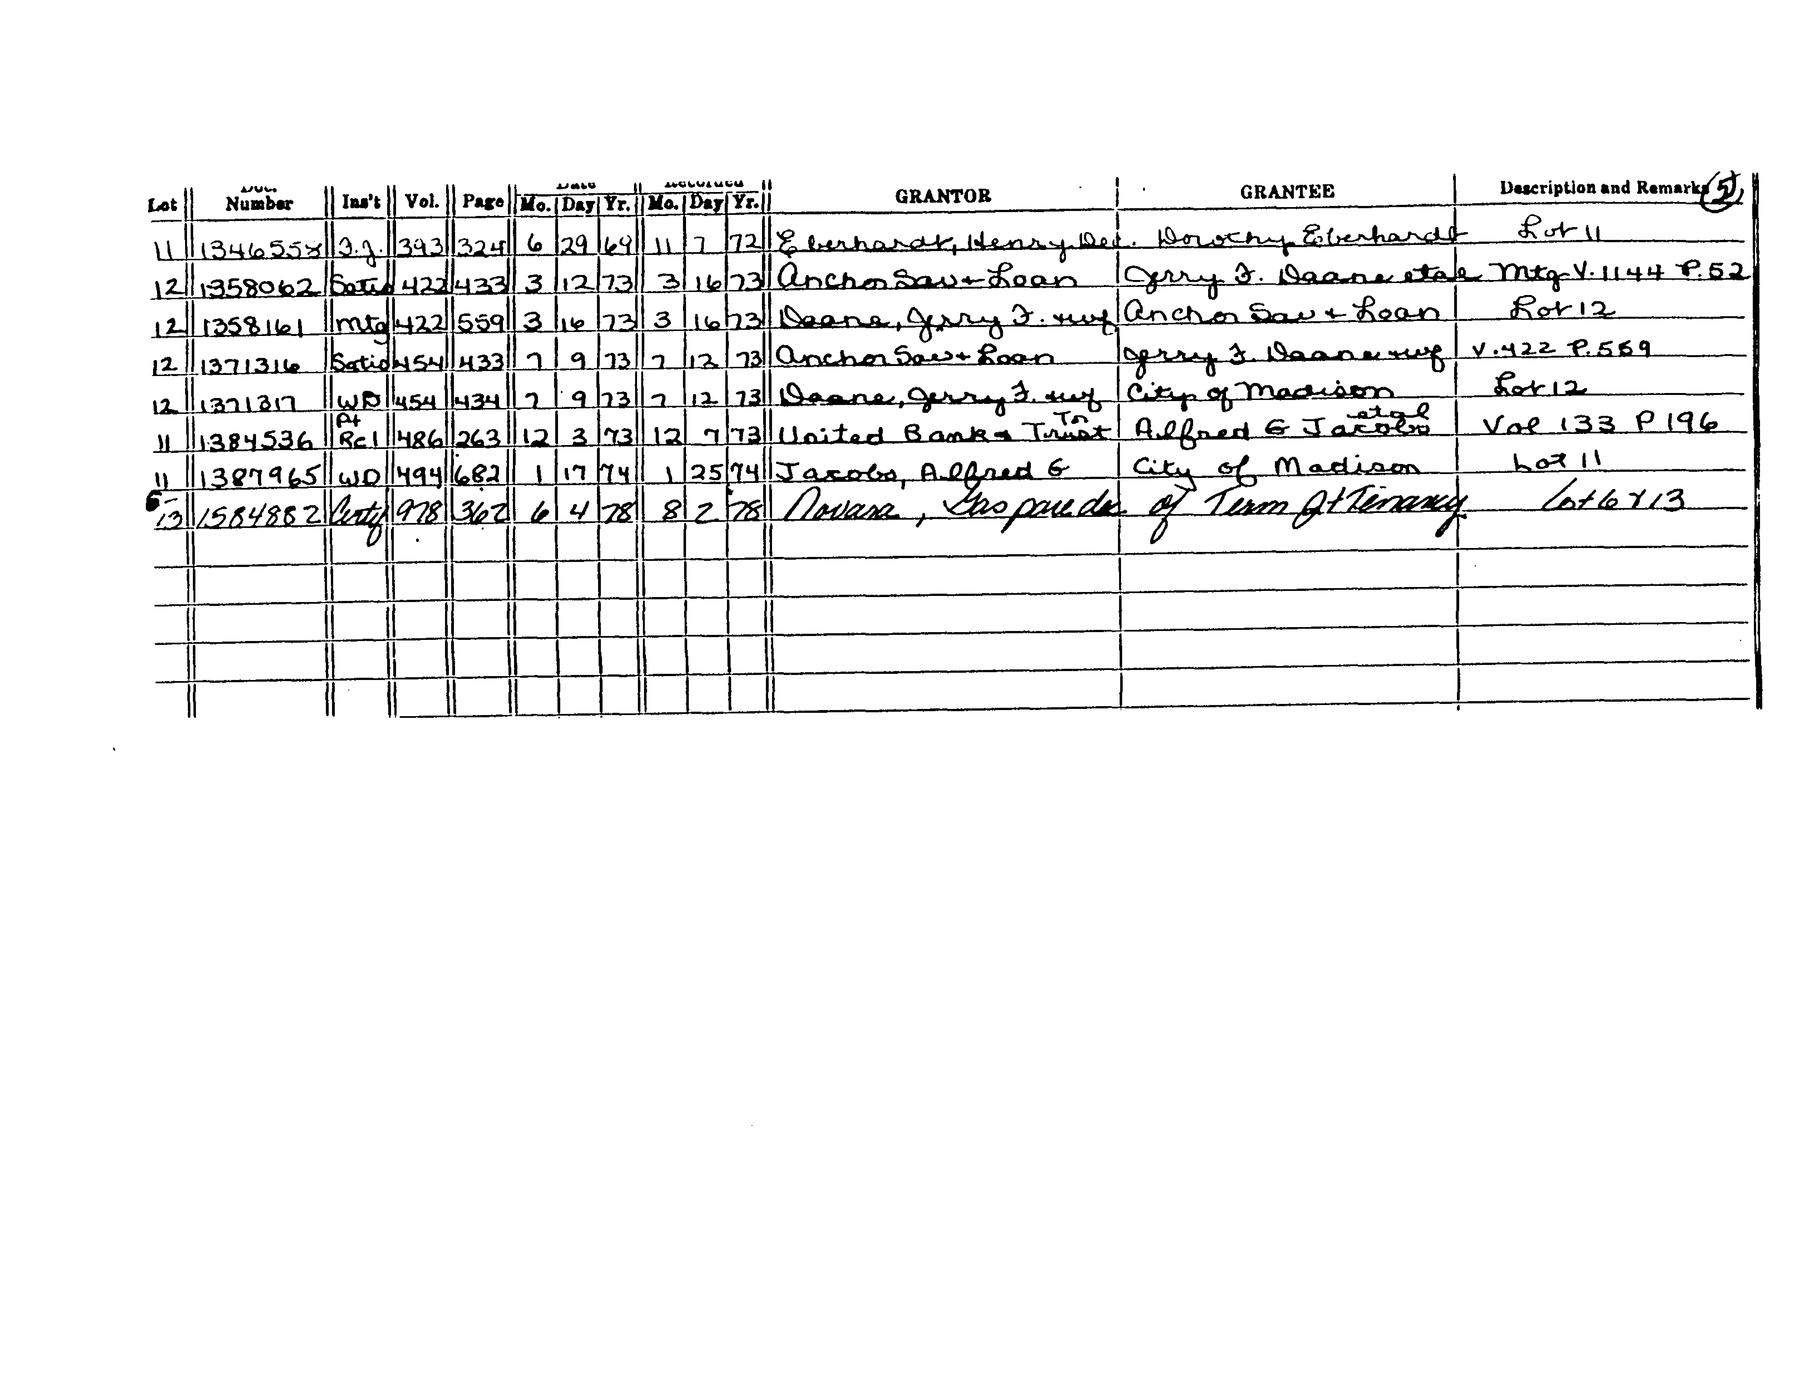 Doc. Date Recorded
Lot Number Ins't Vol. Page Mo. Day Yr. Mo. Day Yr. GRANTOR GRANTEE Description and Remarks 5
11 1346558 F.J. 393 324 6 29 69 11 7 72 Eberhardt, Henry Dec. Dorothy Eberhardt Lot 11
12 1358062 Satis 422 433 3 12 73 3 16 73 Anchor Sav + Loan Jerry F. Daane etal Mtg V. 1144 P. 52
12 1358161 Mtg 422 559 3 16 73 3 16 73 Daane, Jerry F. +wf Anchor Sav + Loan Lot 12
12 1371316 Satis 454 433 7 9 73 7 12 73 Anchor Sav + Loan Jerry F. Daane +wf V. 422 P. 559
12 1371317 WD 454 434 7 9 73 7 12 73 Daane, Jerry F. +wf City of Madison Lot 12
Pt Tr etal
11 1384536 Rel 486 263 12 3 73 12 7 73 United Bank & Trust Alfred G Jacobs Vol 133 P 196
11 1387965 WD 494 682 1 17 74 1 25 74 Jacobs, Alfred G City of Madison Lot 11
13 1584882 Certf 978 362 6 4 78 8 2 78 Novara, Gaspare dec of Term Jt Tenancy Lot 6 & 13